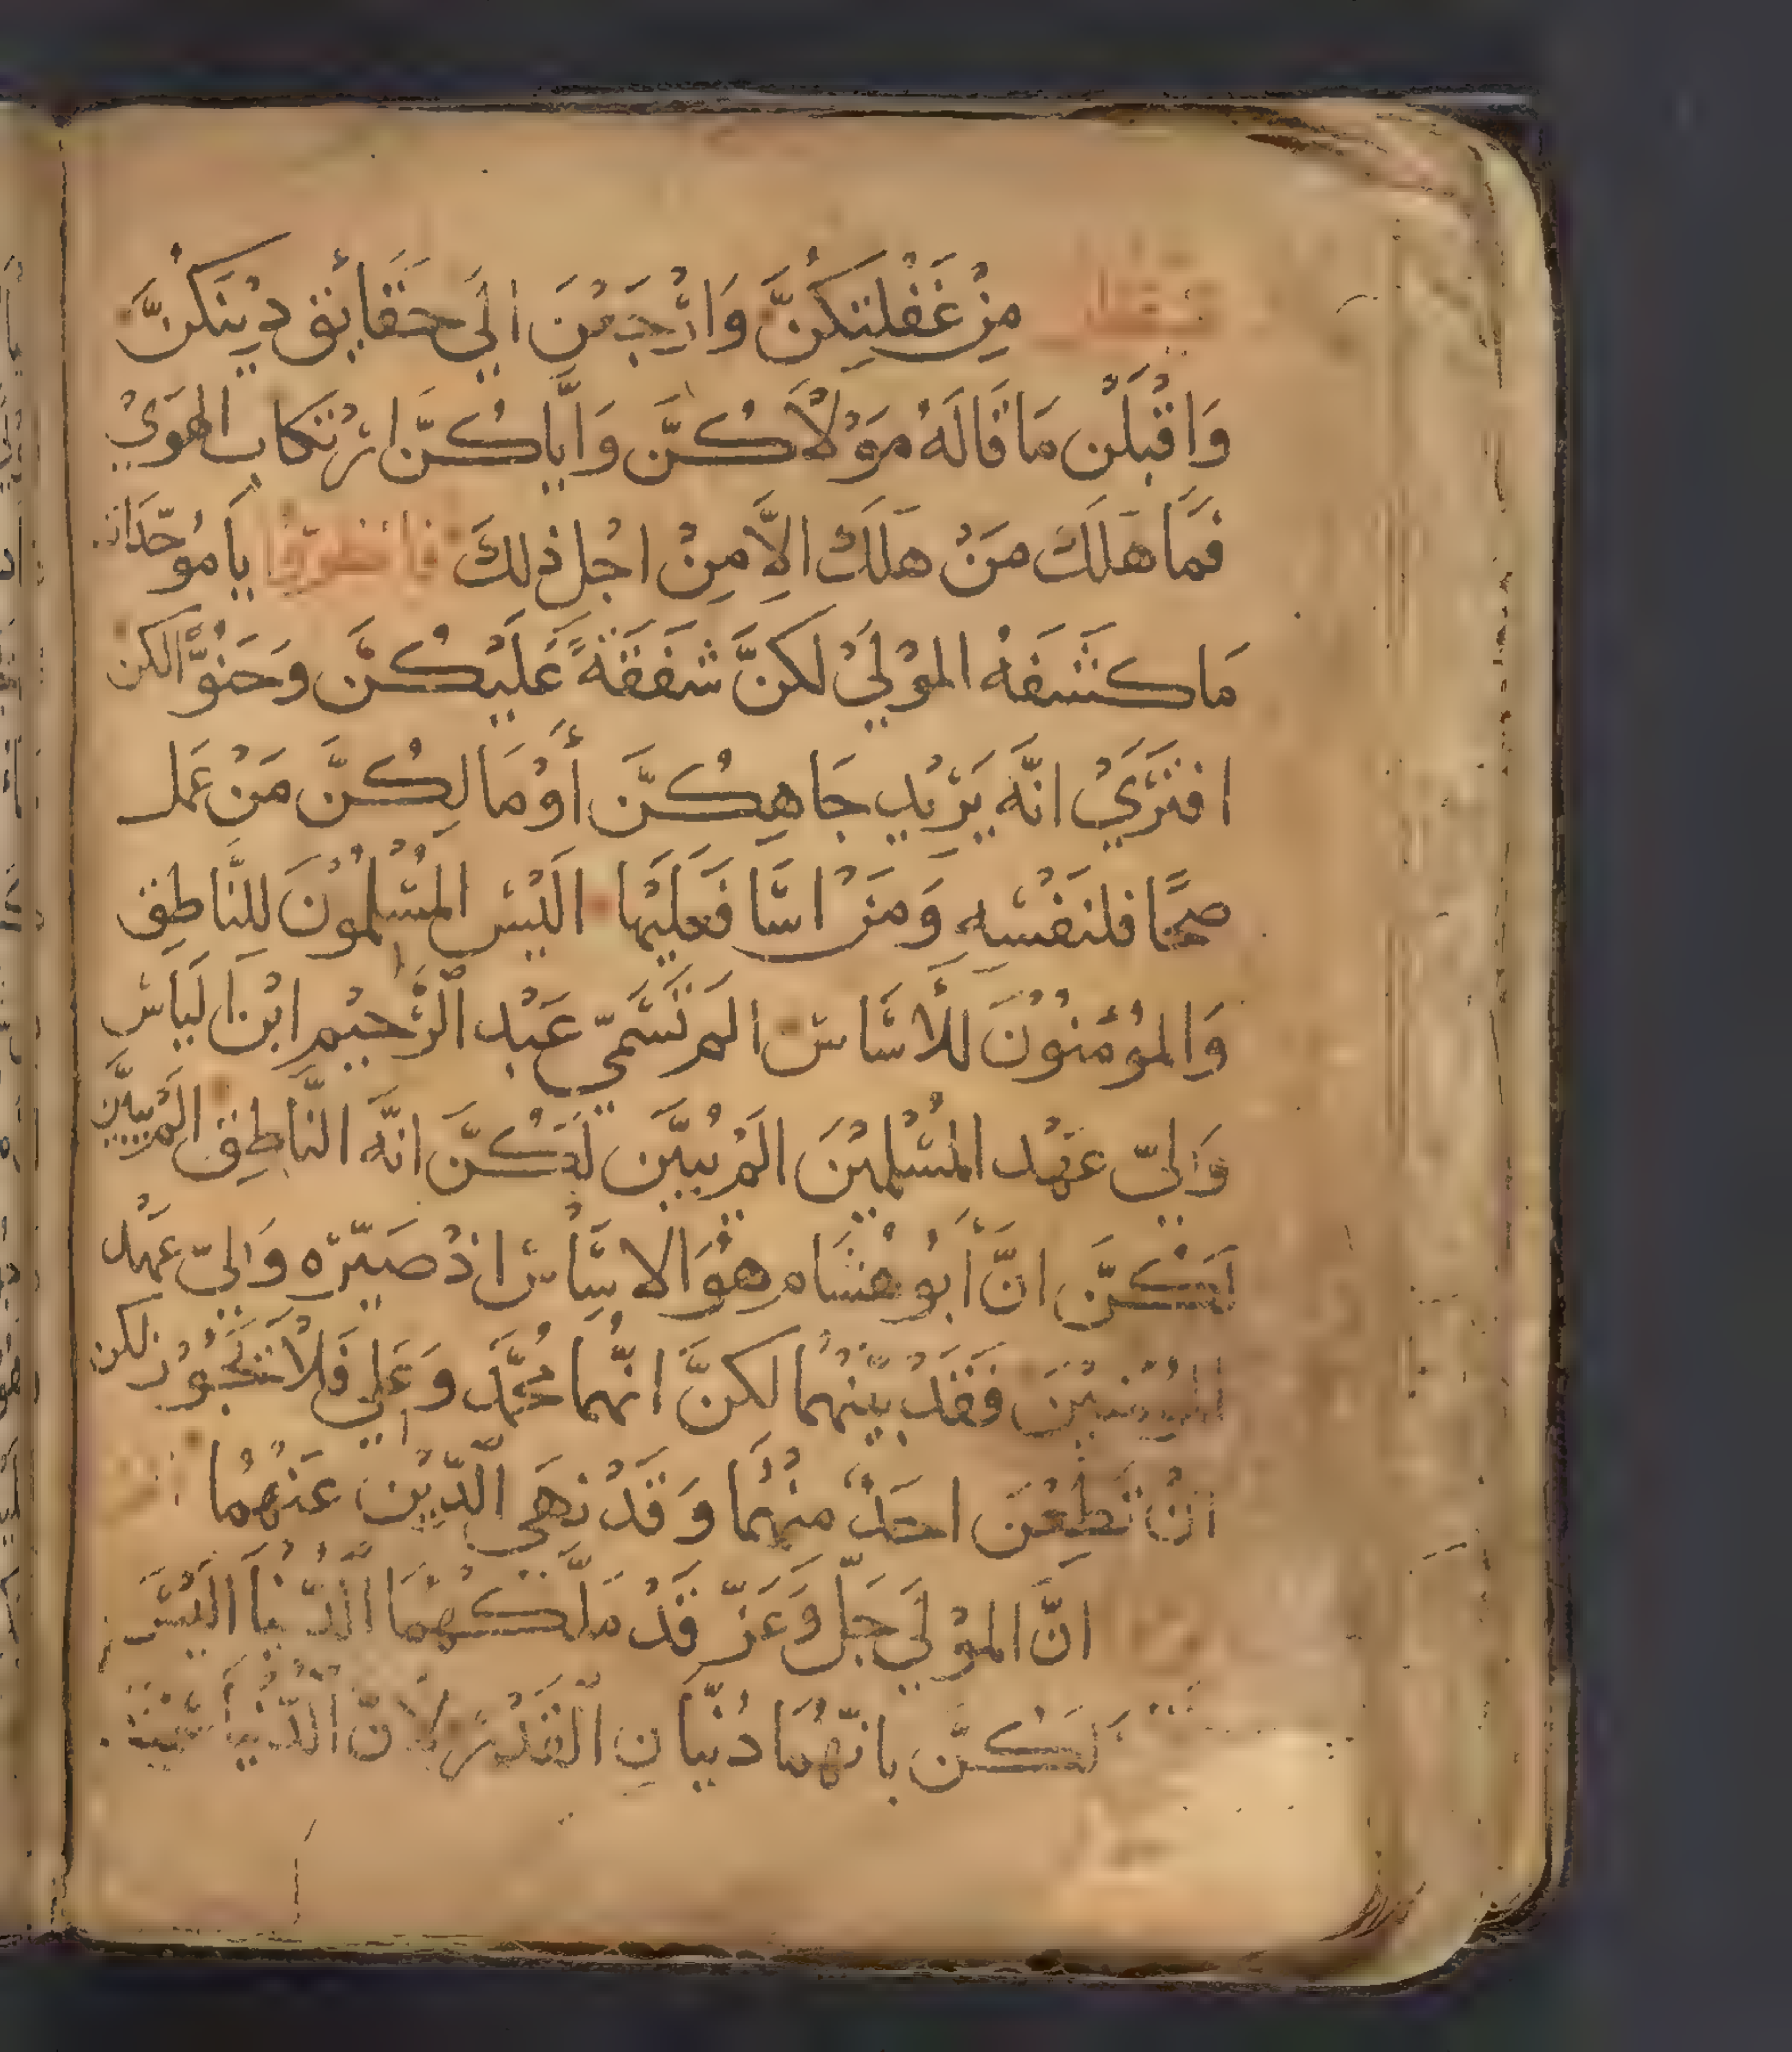 مِنْ غَفْلَتِكُنَّ وَارْجَعْنَ اِلَي حَقَائِق دِيْنَكُنَّ
وَاقْبَلْن مَا قَالَهُ مَوْلَاكُنَّ وَاِيَّاكُنَّ ارْتكاب الهَوَيْ
فَمَا هَلَكَ مَنْ هَلَكَ الاَّ مِنْ اجْل ذلكَ فانظرن يَا مُوحّدَات
مَا كَشَفَهُ المَوْلَيْ لَكنَّ شَفَقَةً عَلَيْكُنَّ وَحَنُوًّا لكن
افتَرَيْ انَّه يَرْيْد جَاهِكُنَّ أَوْ مَالِكُنَّ مَنْ عَمل
صحًا فلنَفْسِهِ وَمَنْ اسَا فَعلَيْهَا الَيْسَ المُسْلمُوْنَ للنَّاطِق
وَالمُؤْمنُوْنَ للأَسَاسَ الم تَسَمّيْ عَبْد الرَّحيْمِ ابْنَ اليَاس
وَليّ عَهْد المُسْلِمِيْنَ الَمْ يُبيَّن لَكُنَّ انَّه النَّاطِق المْ يبيَّن
لَكُنَّ انَّ أَبُو هشَام هُوَ الاسَاسَ اذْ صَيّرَه وَليّ عَهْد
المُؤْمِنِيْنَ فَقَدْ بيّنْهُمَا لكنَّ انّهُمَا مُحَمَّد وَعَلِي فَلَا تَجُوْز لكن
انْ تَطِعْنَ احَدٌ منْهُمَا وَقَدْ نَهَي الَّدِيْن عَنْهُمَا
انَّ المَوْلَي جَلّ وَعَزّ قَدْ مَلَّكهُمَا الدّنْيَا الَيْسَ
لَكُنَّ بانّهُمَا دنْيَانِ القَدْر لانّ الدّنْيَا